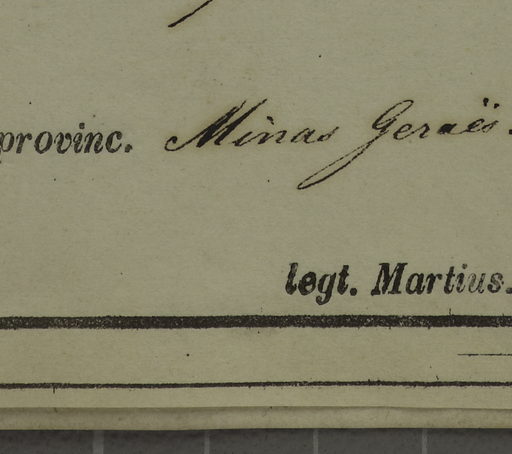 provinc. Minas Geraës.
legt. Martius.